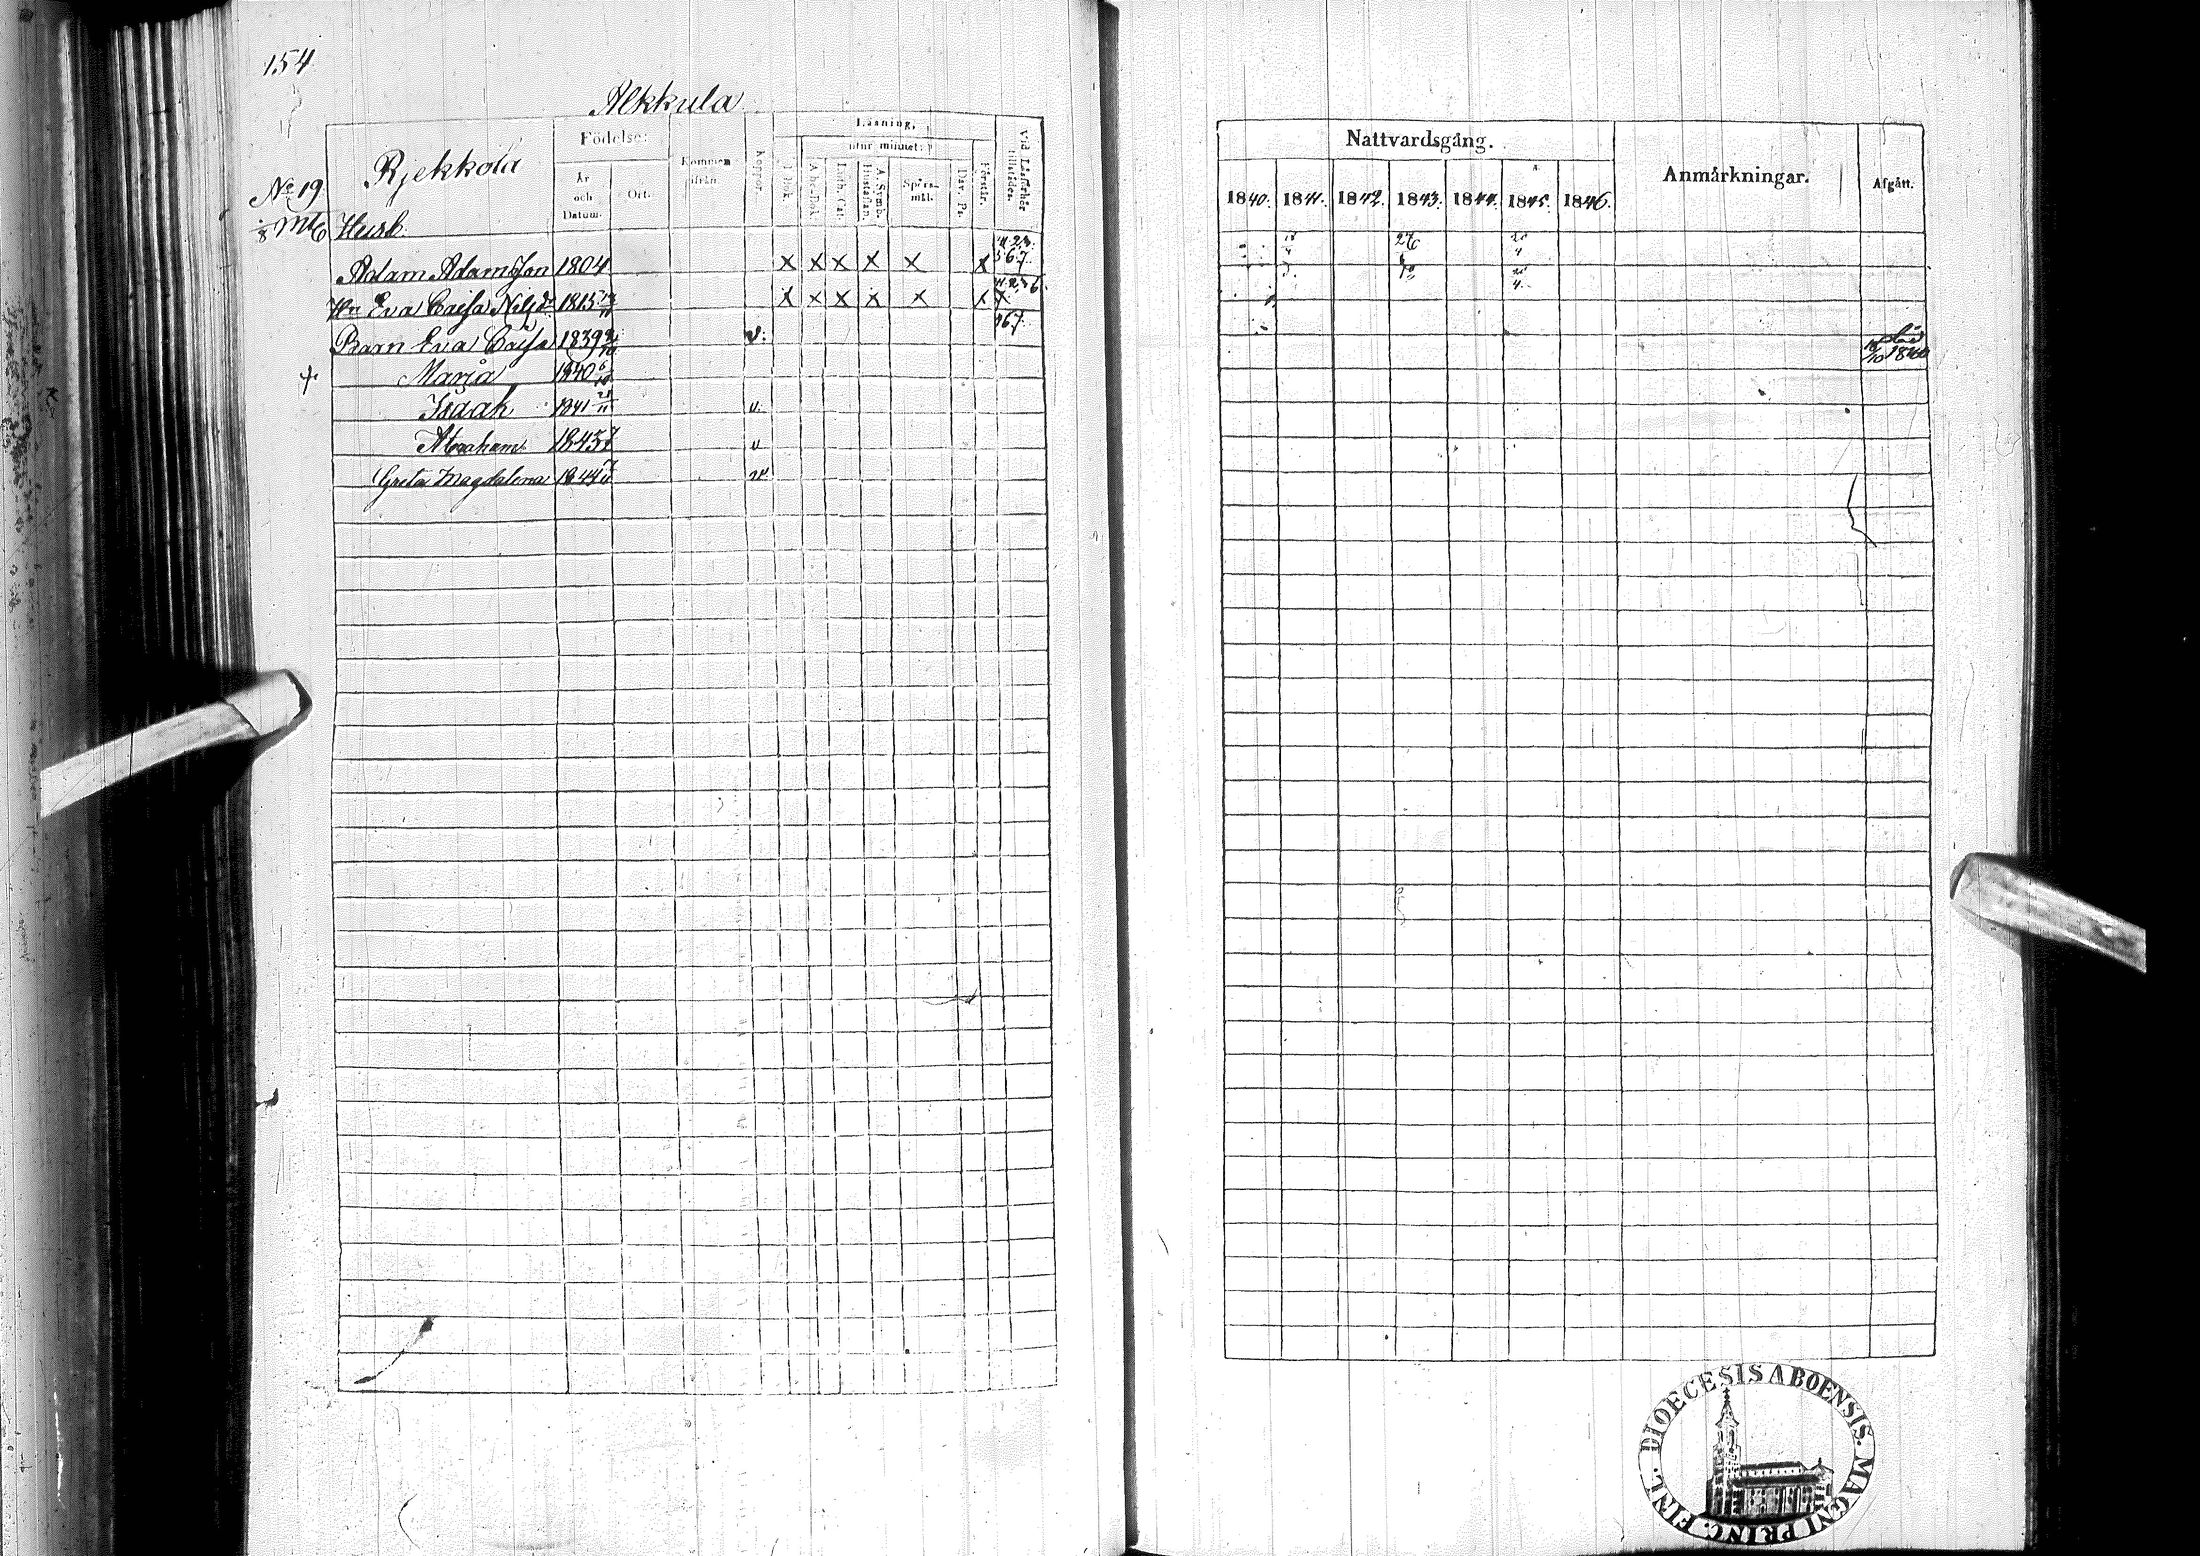 154
Alkkula
No 19
Rjekkola
Födelse:
År
och
Datum.
Ort.
Kommen
ifrån.
Koppor.
Läsning,
utur minnet:
I Bok.
A b c-Bok.
Luth. Cat.
Hustaflan.
A. Symb.
Spörs-
mål.
Dav. Ps.
Förstår.
Vid Läsförhör
tillstädes.
Husb.
Adam Adamsson 1804 X X X X X X 567
Hu Eva Caisa Nilsdr 1815 X X X X X X
Barn Eva Caisa 1839 v. 467
+ Maria 1840
Isaak 1841 21/11 v.
Abraham 1843 v
Greta Magdalena 1844 v
Nattvardsgång.
1840. 1841. 1842. 1843. 1844. 1845. 1846.
Anmärkningar.
Afgått.
DIOECESIS ABOENSIS. MAGNI PRINC. FINL.